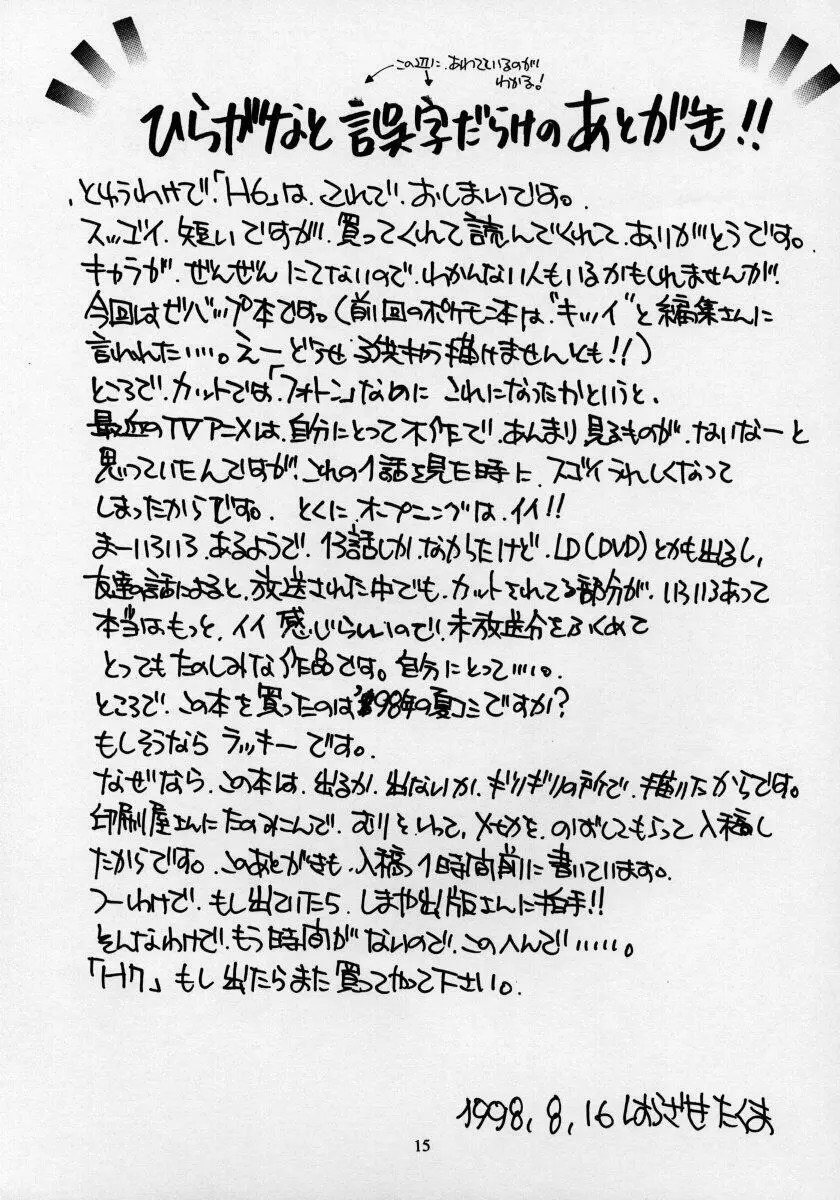 この辺に、あわてているのが
わかる!
ひらがなと誤字だらけのあとがき!!
、とゆうわけで、「H6」は、これで、おしまいです。
スッゴイ、短いですが、買ってくれて読んでくれて、ありがとうです。
キャラが、ぜんぜん にてないので、わかんない人もいるかもしれませんが、
今回はゼバップ本です。(前回のポケモン本は、"キッツイ"と編集さんに
言われた‥‥。えーどうせ 描けませんとも!!)
ところで、カットでは、「フォトン」なのに これになったかというと、
最近のTVアニメは、自分にとって不作で、あんまり見るものが、ないなーと
思っていたんですが、これの1話を見た時に、スゴイうれしくなって
しまったからです。 とくに オープニングは、イイ!!
まーいろいろ、あるようで、13話しか、なかったけど、LD(DVD)とかも出るし、
友達の話によると、放送された中でも、カットされてる部分が、いろいろあって
本当は、もっと、イイ 感じらしいので、未放送分をふくめて
とってもたのしみな作品です。自分にとって‥‥。
ところで、この本を買ったのは'98年の夏コミですか?
もしそうなら ラッキーです。
なぜなら、この本は、出るか、出ないか、ギリギリの所で、描いたからです。
印刷屋さんにたのみこんで、むりをいって、〆切を、のばしてもらって入稿し
たからです。このあとがきも、入稿、1時間前に書いています。
つーわけで、もし出ていたら、しまや出版さんに拍手!!
そんなわけで、もう時間がないので、このへんで‥‥‥。
「H7」もし出たらまた買ってやって下さい。
1998,8,16 はらざきたくま
15